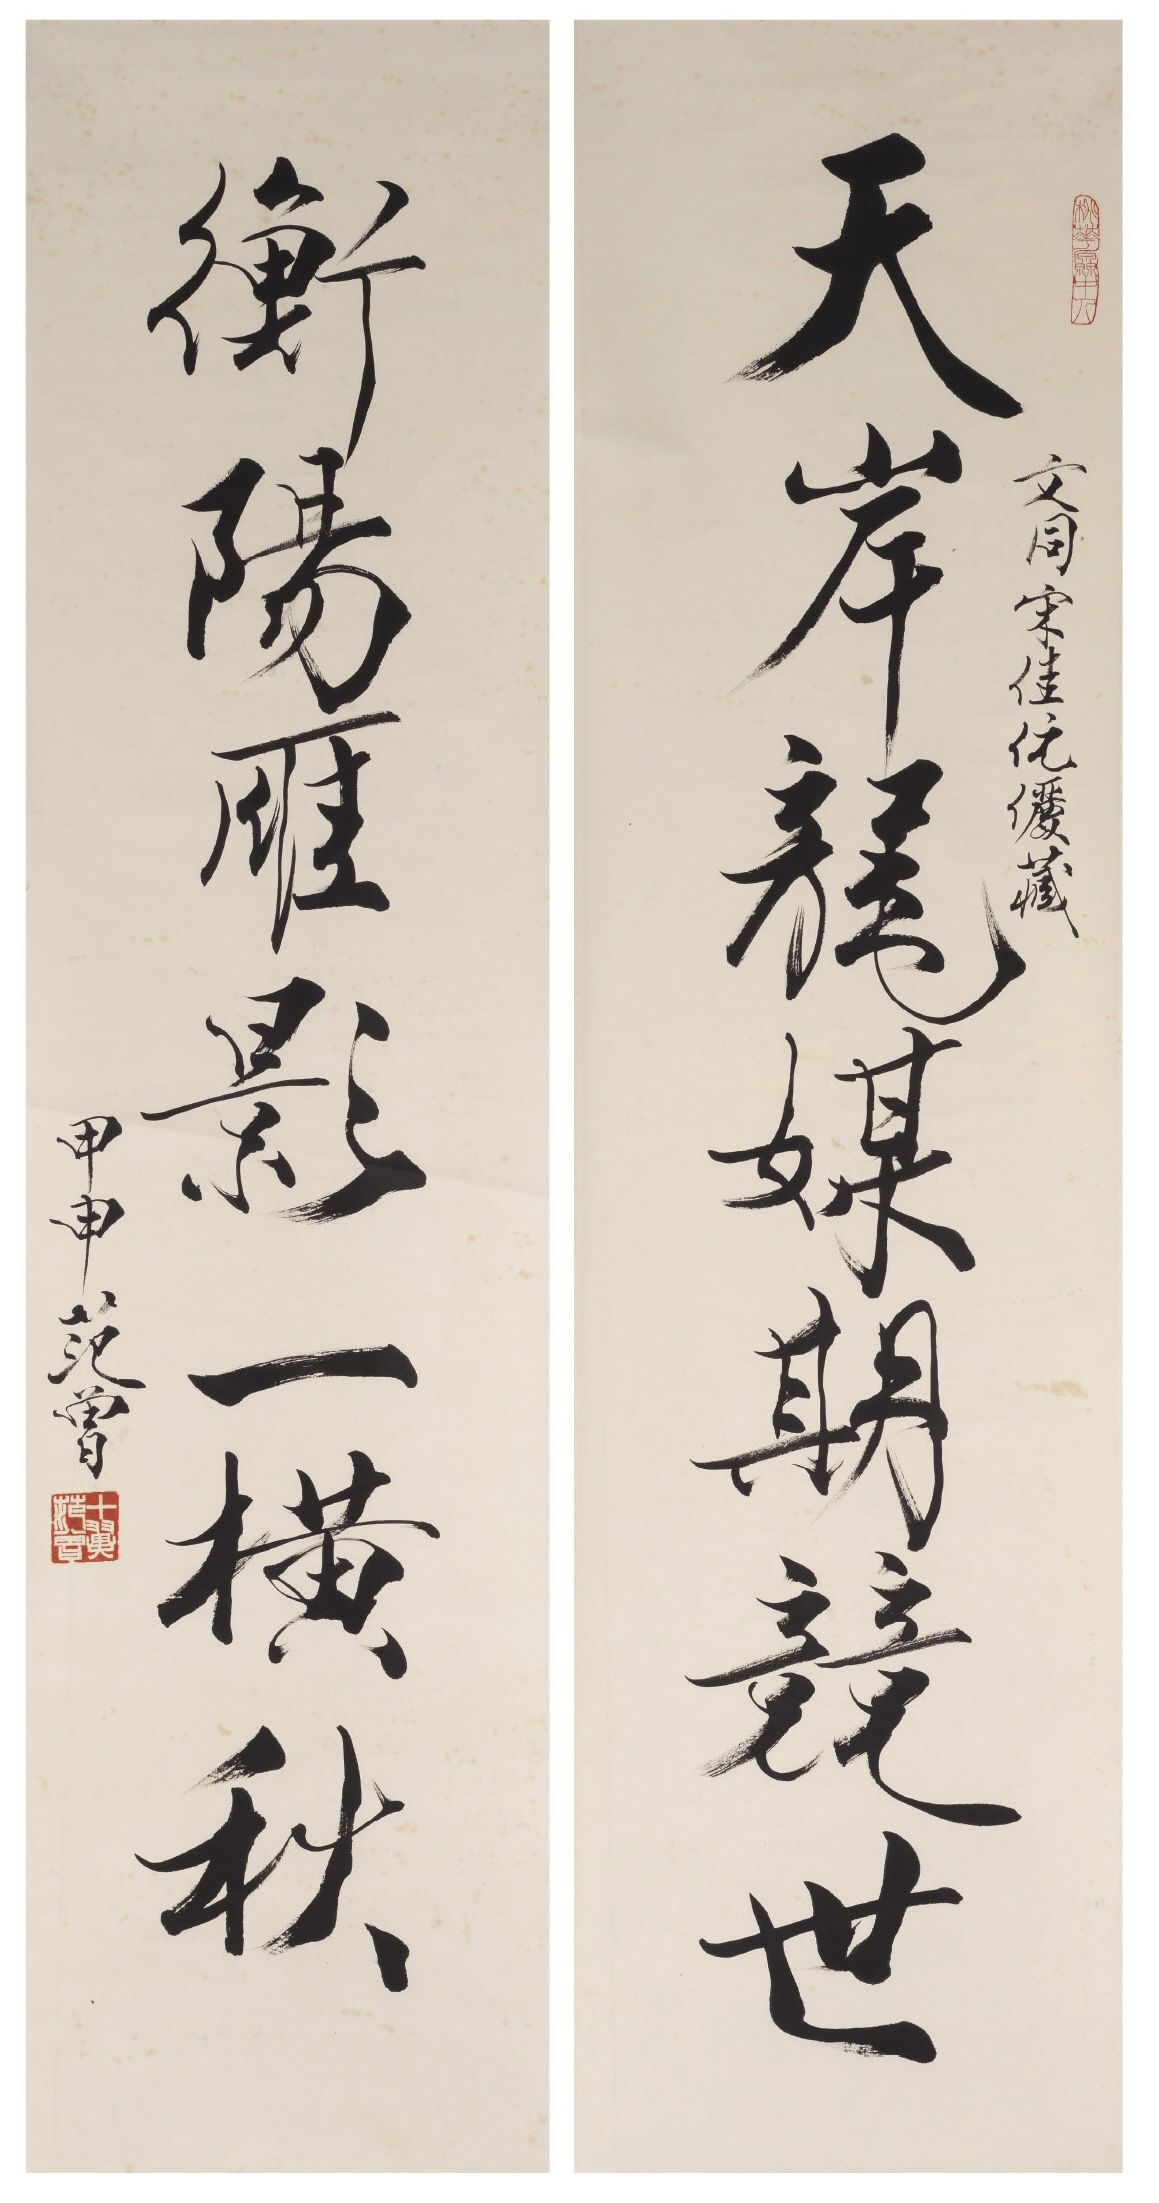 天岸龍媒期競世
文同宋佳伉儷藏
衡陽雁影一橫秋
甲申范曾
十翼
范曾